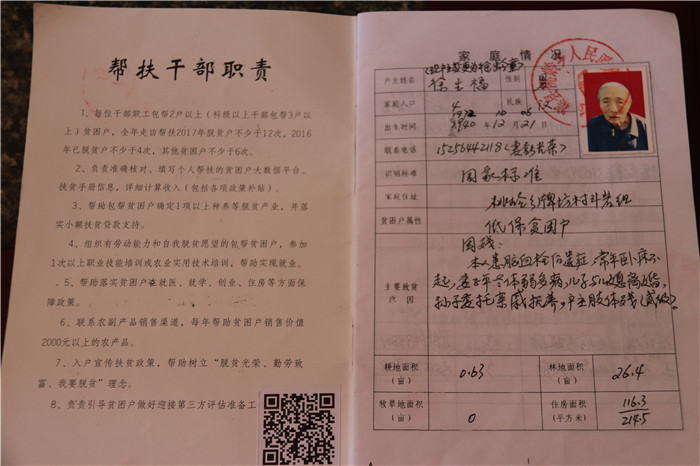 帮扶干部职责
1、每位干部职工包帮2户以上(科级以上干部包帮3户以
上)贫困户,全年走访帮扶2017年脱贫户不少于12次,2016
年已脱贫户不少于4次,其他贫困户不少于6次。
2、负责准确核对、填写个人帮扶的贫困户大数据平台、
扶贫手册信息,详细计算收入(包括各项政策补贴)。
3、帮助包帮贫困户确定1项以上种养等脱贫产业,并落
实小额扶贫贷款支持。
4、组织有劳动能力和自我脱贫愿望的包帮贫困户,参加
1次以上职业技能培训或农业实用技术培训,帮助实现就业。
5、帮助落实贫困户在就医、就学、创业、住房等方面保
障政策。
6、联系农副产品销售渠道,每年帮助贫困户销售价值
2000元以上的农产品。
7、入户宣传扶贫政策,帮助树立“脱贫光荣、勤劳致
富、我要脱贫”理念。
8、负责引导贫困户做好迎接第三方评估准备工
家庭情况
户主姓名 徐士福 性别
家庭人口 4 民族 汉
出生时间 1940 10 12月21日
联系电话 15256442118
识别标准 国家标准
家庭住址 牌坊村
贫困户属性 低保贫困户
主要致贫
原因
因残:
本人患脑血栓后遗症,常年卧床不
起,妻子年老体弱多病,儿子与儿媳离婚,
孙子委托亲戚抚养,户主肢体残(贰级)。
耕地面积
(亩)
0.63
林地面积
(亩)
26.4
牧草地面积
(亩)
0
住房面积
(平方米)
116.3
214.5
1